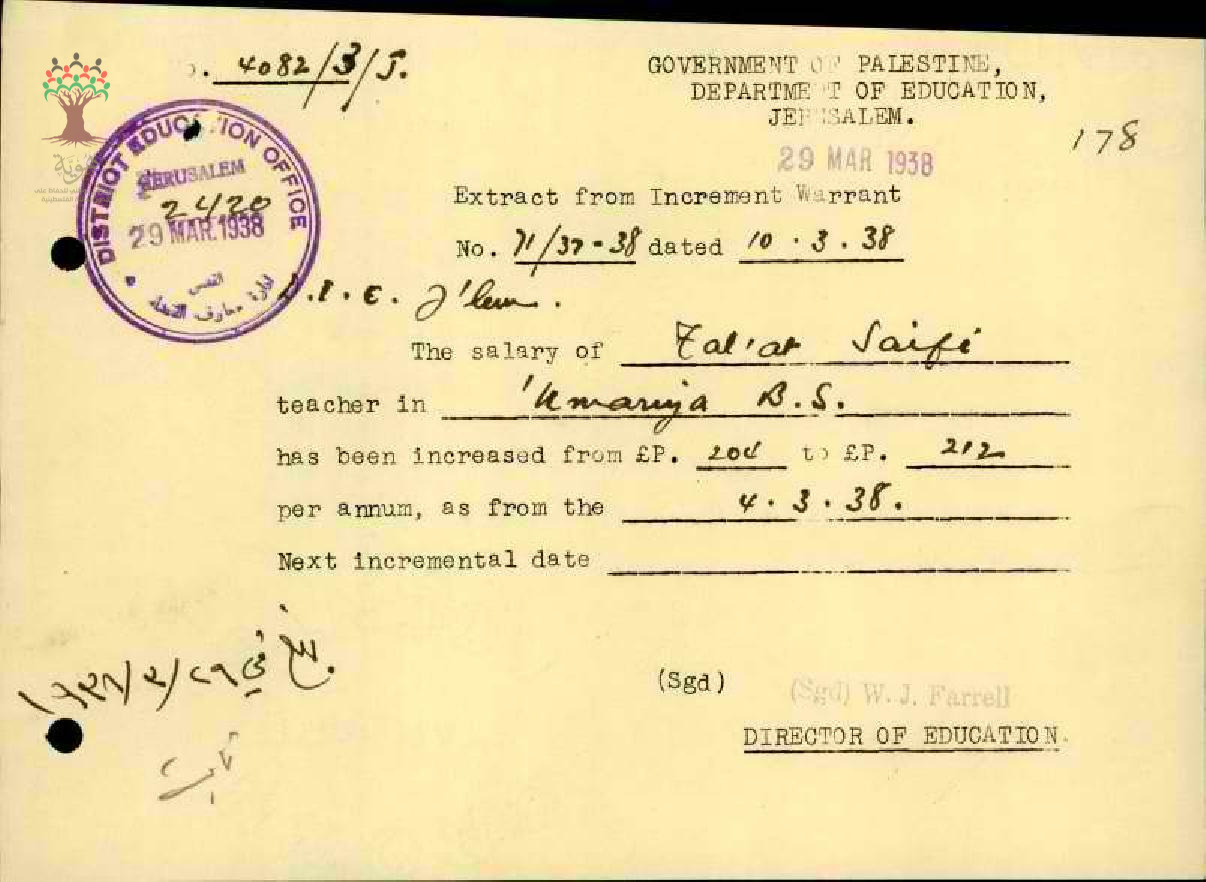 4082/3/J.
GOVERNMENT OF PALESTINE,
DEPARTMENT OF EDUCATION,
JERUSALEM.
178
29 MAR 1938
DISTRICT EDUCATION OFFICE
JERUSALEM
2420
29 MAR. 1938
القدس
ادارة معارف
Extract from Increment Warrant
No. 71/37-38 dated 10.3.38
.I.E. J'lem.
The salary of Tal'at Saifi
teacher in 'Umariya B.S.
has been increased from £P. 204 to £P. 212
per annum, as from the 4.3.38.
Next incremental date
(Sgd) (Sgd) W. J. Farrell
DIRECTOR OF EDUCATION.